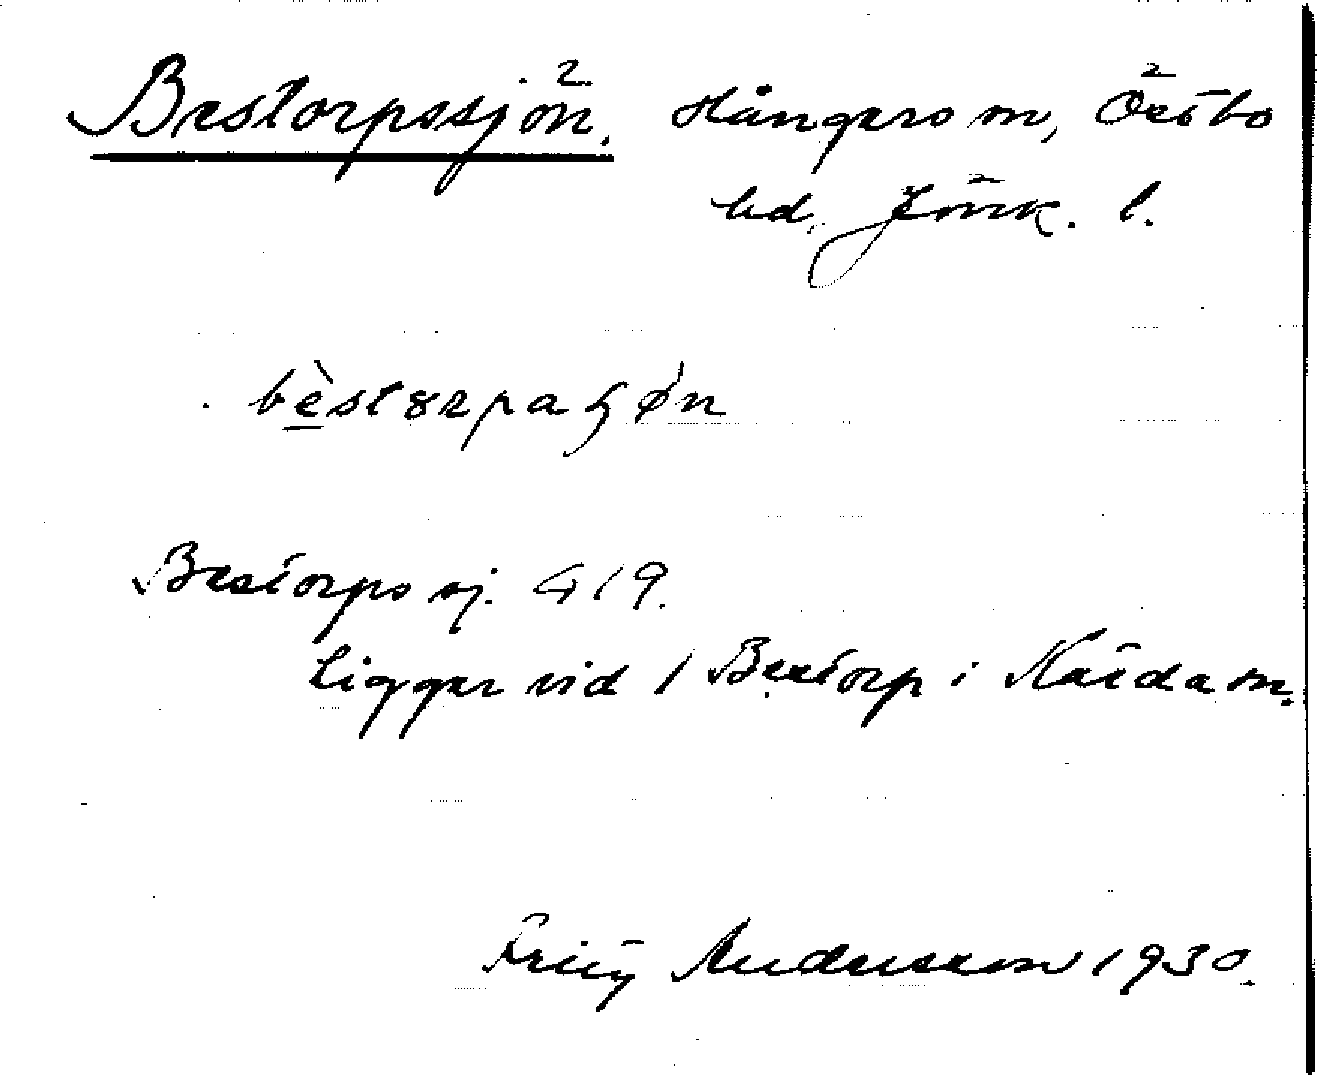 Bestorpssjön. Hångers sn, Östbo
hd. Jönk. l.
bèstorpaʃǿn
Bestorps sj. G 19.
Ligger vid 1 Bestorp i Kärda sn.
Fritz Andersson 1930.